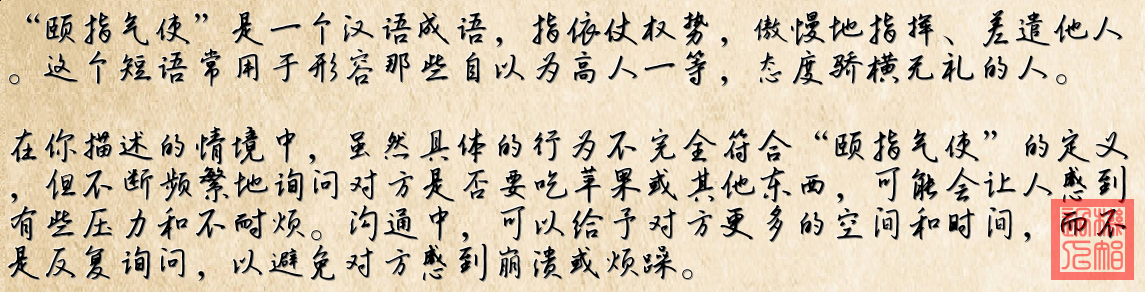 “颐指气使”是一个汉语成语，指依仗权势，傲慢地指挥、差遣他人
。这个短语常用于形容那些自以为高人一等，态度骄横无礼的人。
在你描述的情境中，虽然具体的行为不完全符合“颐指气使”的定义
，但不断频繁地询问对方是否要吃苹果或其他东西，可能会让人感到
有些压力和不耐烦。沟通中，可以给予对方更多的空间和时间，而不
是反复询问，以避免对方感到崩溃或烦躁。